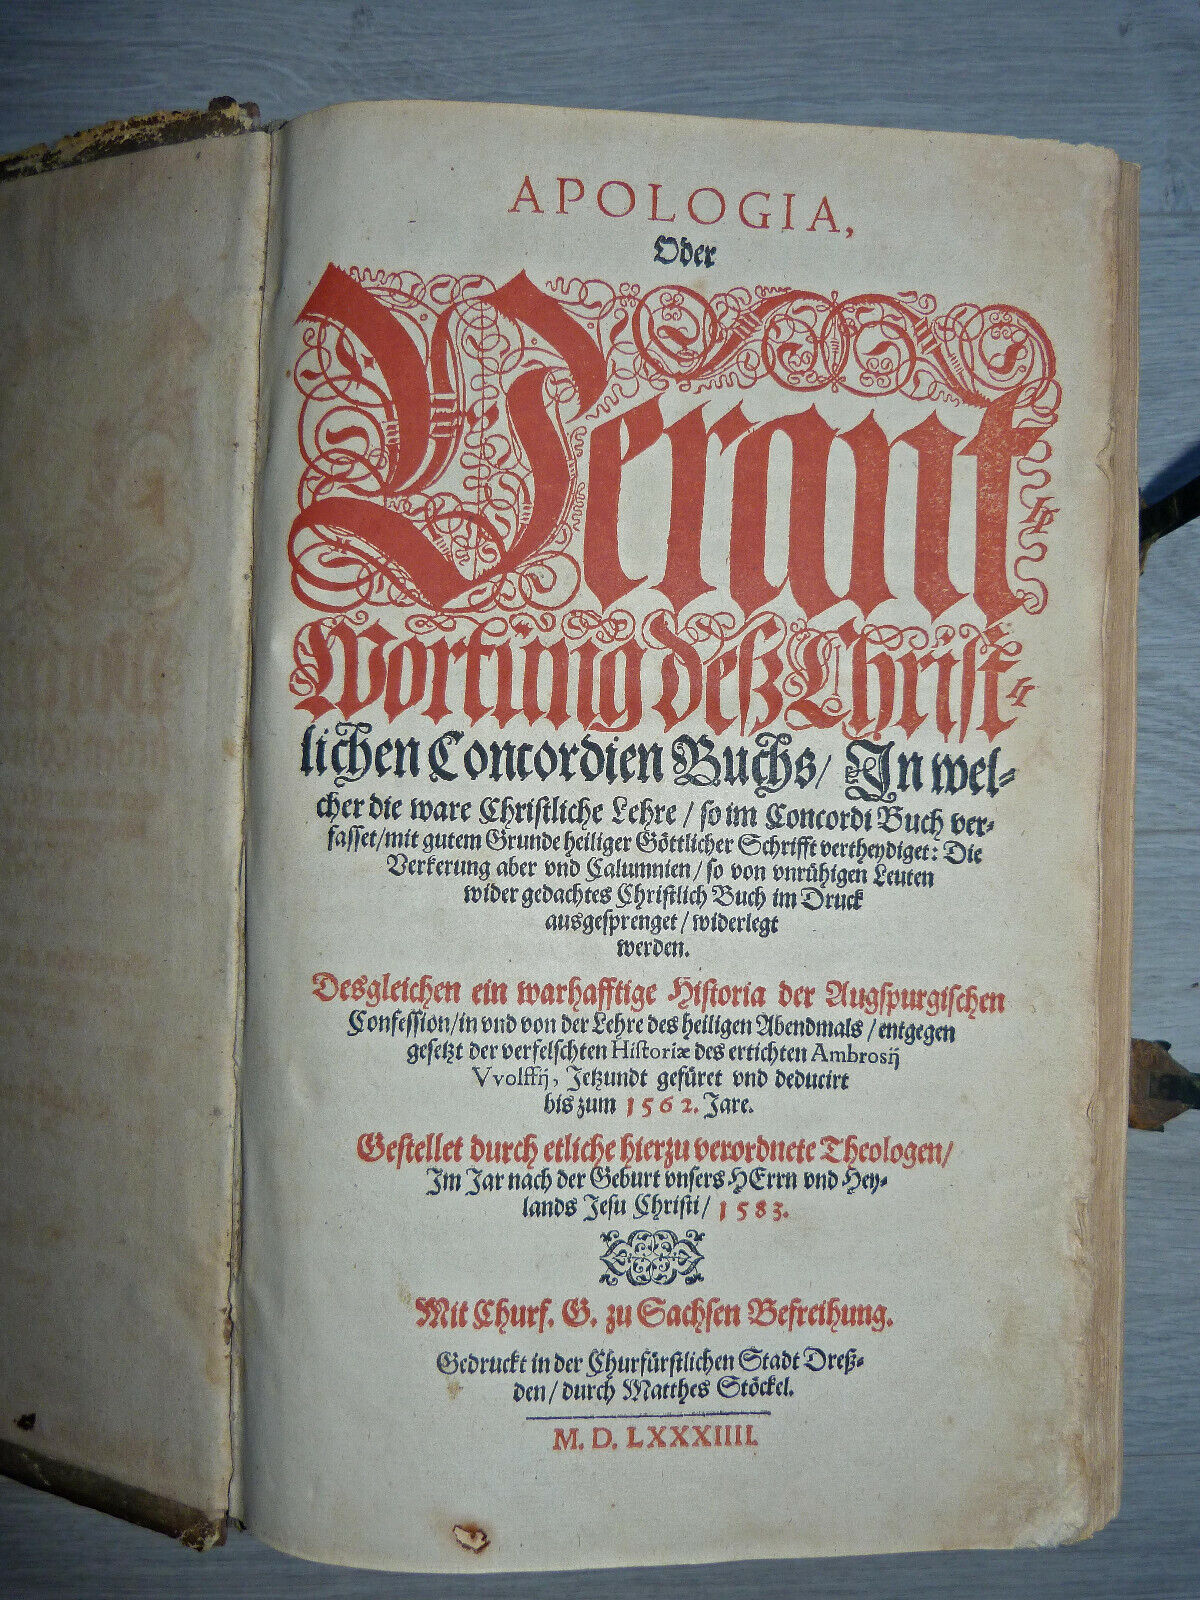 APOLOGIA,
Oder
Verant⸗
Wortung deß Christ⸗
lichen Concordien Buchs/ In wel⸗
cher die ware Christliche Lehre/ so im Concordi Buch ver⸗
fasset/ mit gutem Grunde heiliger Göttlicher Schrifft vertheydiget: Die
Verkerung aber vnd Calumnien/ so von vnrühigen Leuten
wider gedachtes Christlich Buch im Druck
ausgesprenget/ widerlegt
werden.
Desgleichen ein warhafftige Historia der Augspurgischen
Confession/ in vnd von der Lehre des heiligen Abendmals/ entgegen
gesetzt der verfelschten Historiæ des ertichten Ambrosij
VVolffij, Jetzundt gefüret vnd deducirt
bis zum 1562. Jare.
Gestellet durch etliche hierzu verordnete Theologen/
Im Jar nach der Geburt vnsers HErrn vnd Hey⸗
lands Jesu Christi/ 1583.
Mit Churf. G. zu Sachsen Befreihung.
Gedruckt in der Churfürstlichen Stadt Dreß⸗
den/ durch Matthes Stöckel.
M. D. LXXXIIII.